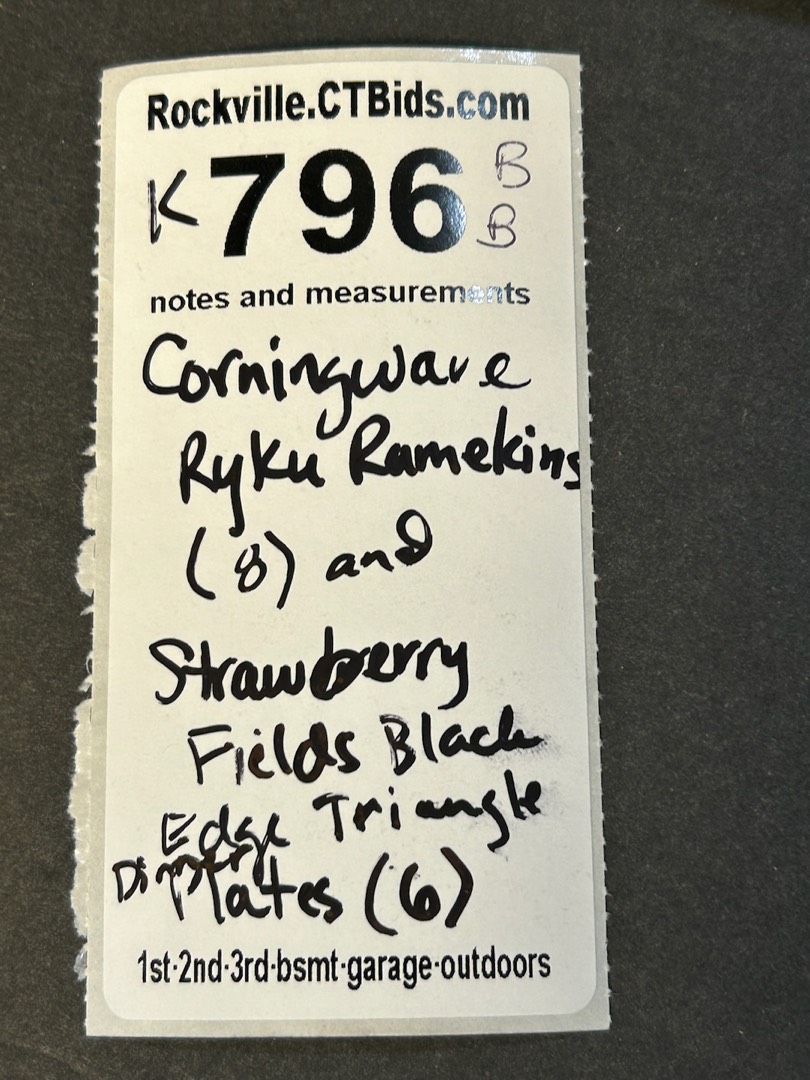 Rockville.CTBids.com
K 796 B
B
notes and measurements
Corningware
Ryku Ramekins
(8) and
Strawberry
Fields Black
Edge Triangle
Dinner Plates (6)
1st·2nd·3rd·bsmt·garage·outdoors